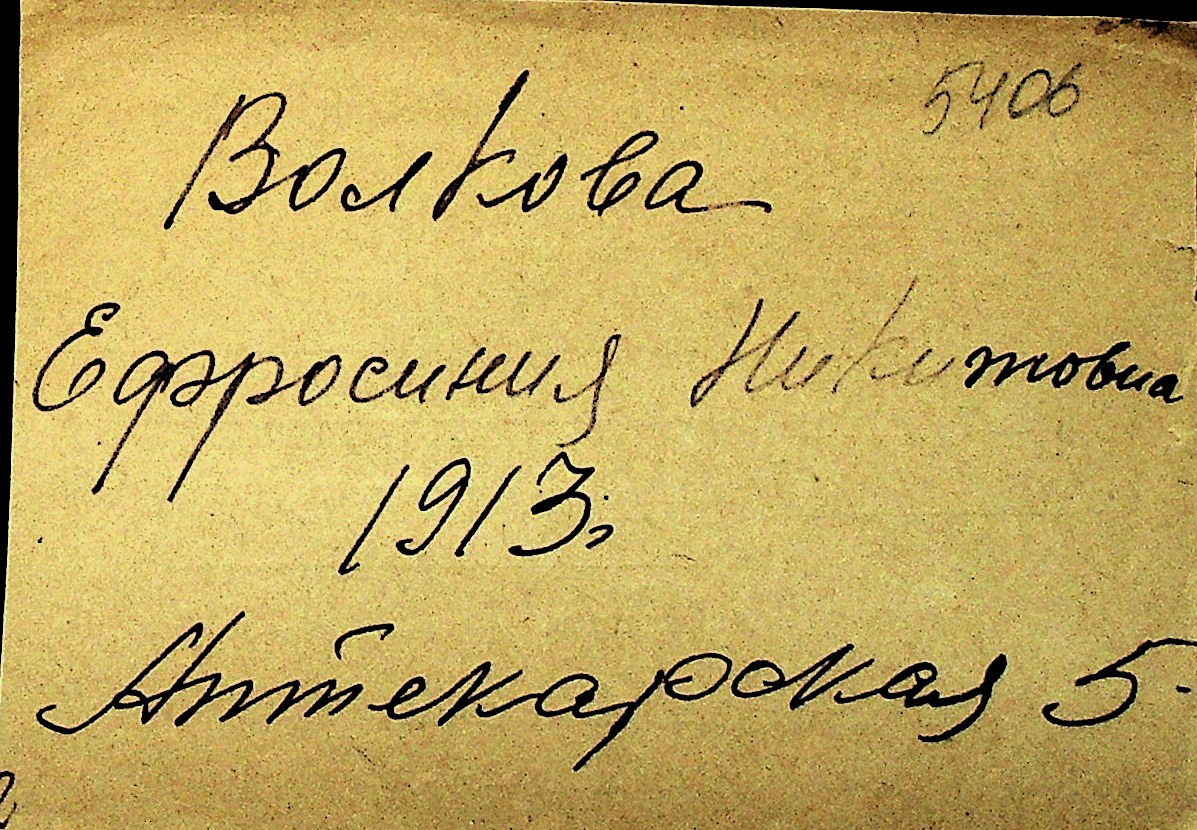 5406
Волкова
Ефросиния Никитовна
1913г
Аптекарская 5.